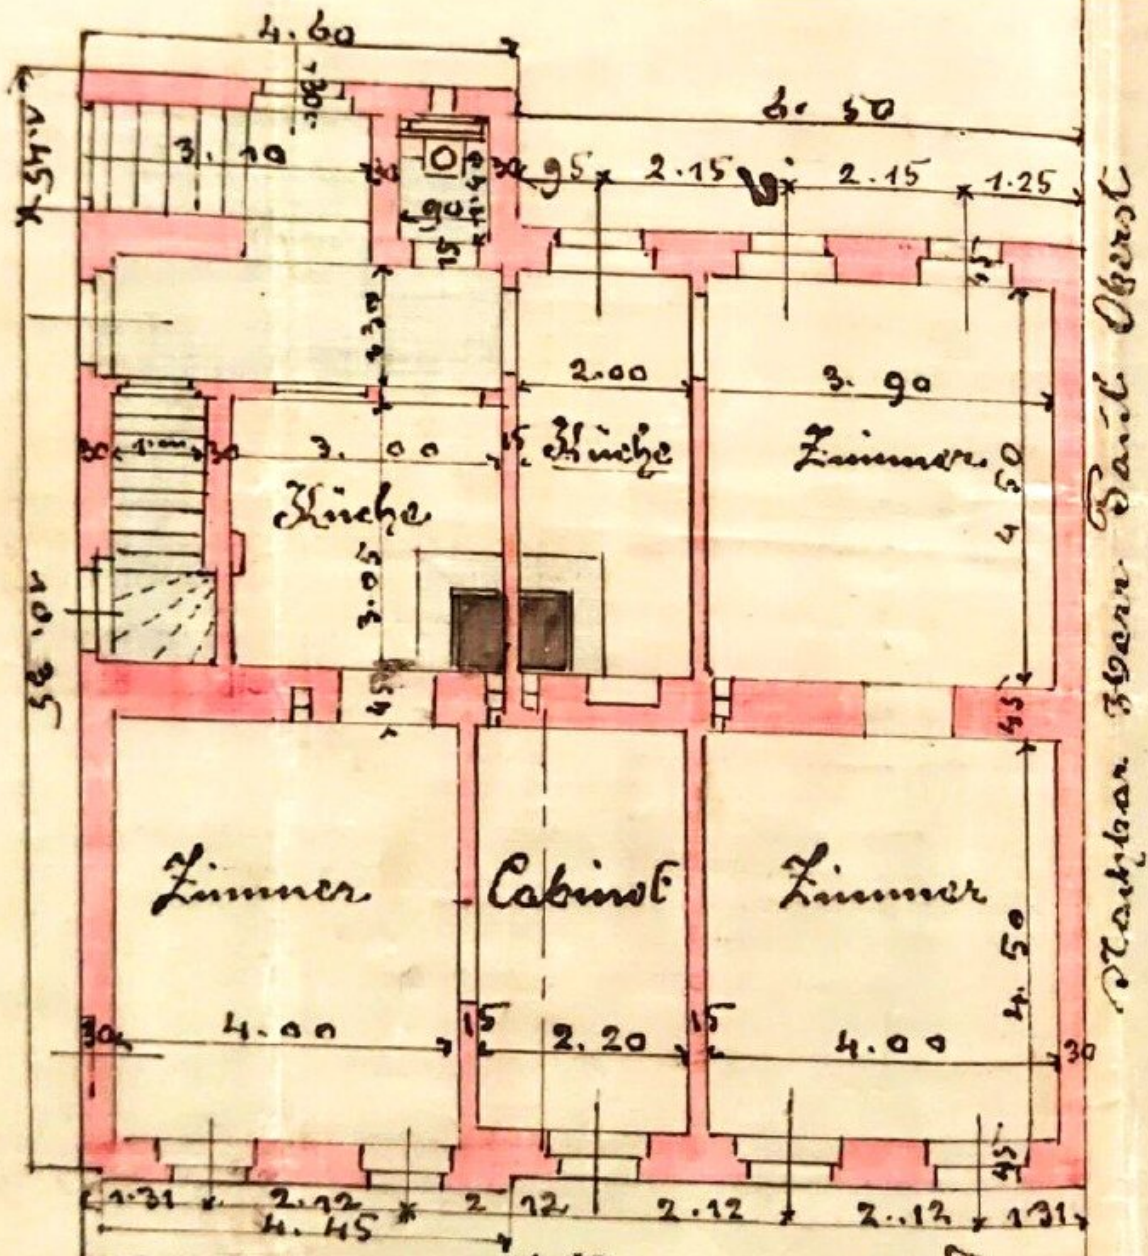 4.60
6.50
30
3.10
30
30
95
2.15
2.15
1.25
90
1.40
15
45
1.30
2.00
3.90
30
1.00
30
3.00
15
Küche
Zimmer
Küche
4.50
3.05
10.35
45
45
Zimmer
Cabinet
Zimmer
4.50
30
4.00
15
2.20
15
4.00
30
45
1.31
2.12
2.12
2.12
2.12
1.31
4.45
Nachbar Herr Paul Oberst